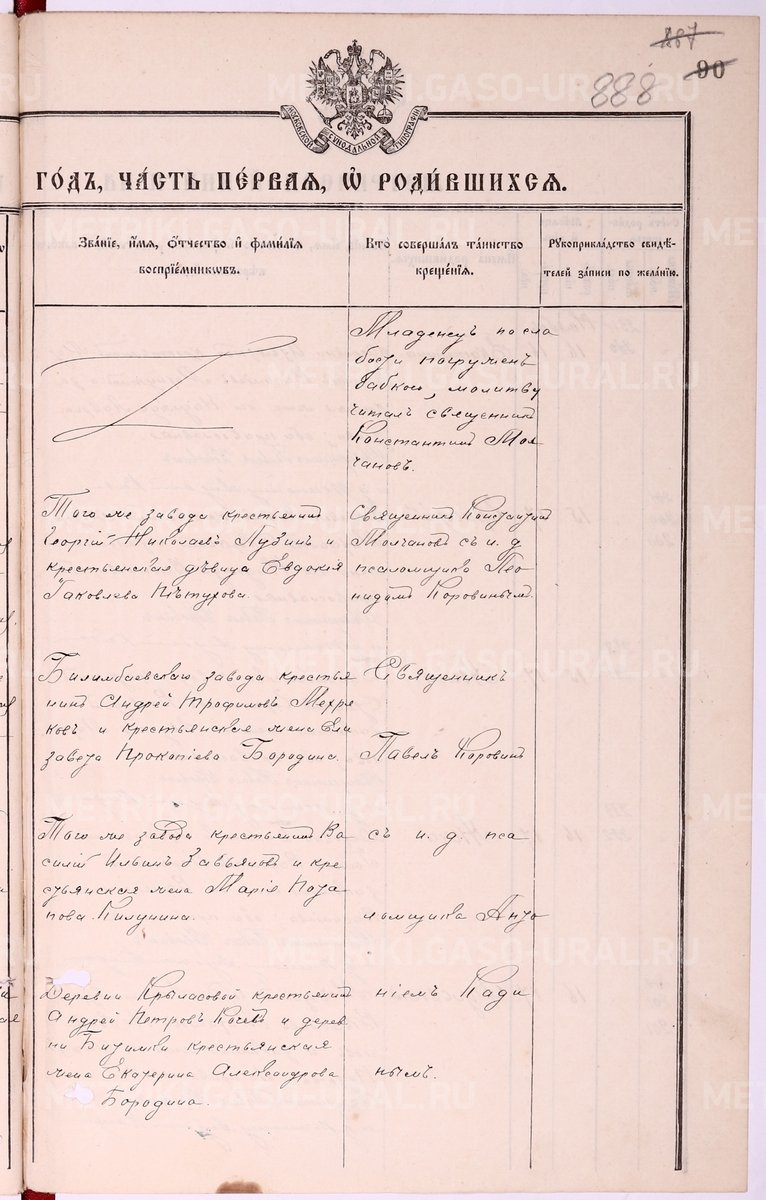 887
90
888
МОСКОВСКОЙ СѴНОДАЛЬНОЙ ТИПОГРАФІИ
ГО́ДЪ, ЧА́СТЬ ПЕ́РВАЯ, Ѡ҆ РОДИ́ВШИХСЯ.
Зва́нїе, и҆́мя, ѻ҆́тчество и҆ фами́лїя
воспрїе́мникѡвъ.
Кто̀ соверша́лъ та́инство
креще́нїя.
Рꙋкоприкла́дство свидѣ́-
телей за́писи по жела́нїю.
Младенецъ по сла
бости погружен
бабкою, молитву
читалъ священникъ
Константинъ Мол
чановъ.
Того же завода крестьянинъ
Георгій Николаевъ Лузинъ и
крестьянская дѣвица Евдокія
Іаковлева Пѣтухова.
Священникъ Константинъ
Молчановъ съ и. д.
псаломщика Лео
нидомъ Коровинымъ.
Билимбаевскаго завода крестья
нинъ Андрей Трофимовъ Мехря
ковъ и крестьянская жена Ели
завета Прокопіева Бородина.
Священникъ
Павелъ Коровинъ
Того же завода крестьянинъ Ва
силій Ильинъ Завьяловъ и кре
стьянская жена Марія Пота
пова Килунина.
съ и. д. пса
ломщика Анто
Деревни Крыласовой крестьянинъ
Андрей Петровъ Кочевъ и дерев
ни Битимки крестьянская
жена Екатерина Александрова
Бородина.
ніемъ Кади
нымъ.
METRIKI.GASO-URAL.RU